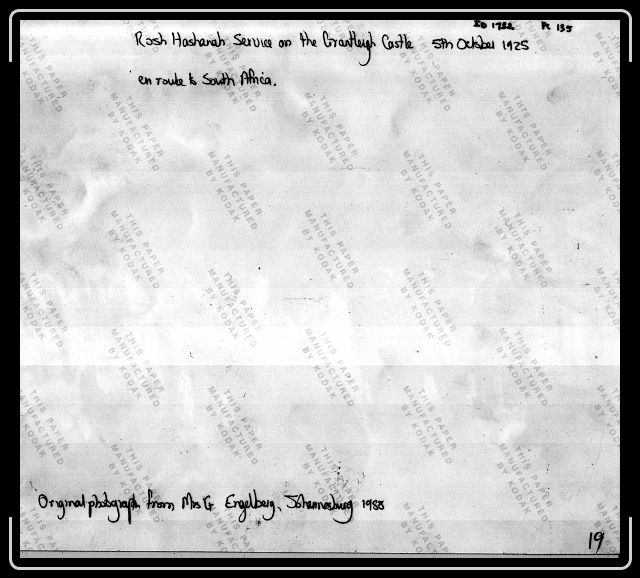 ID 1732 Pc 135
Rosh Hashanah Service on the Grantleigh Castle 5th October 1925
en route to South Africa.
THIS PAPER
MANUFACTURED
BY KODAK
Original photograph from Mrs G Engelberg, Johannesburg 1988
19